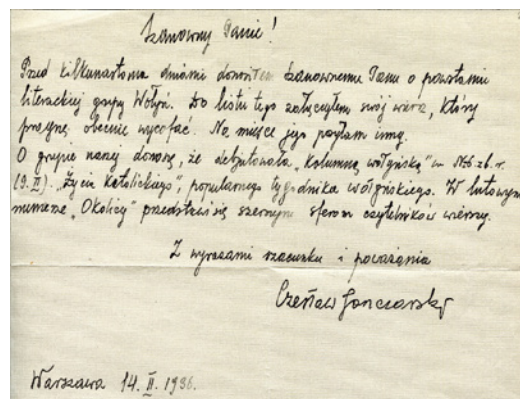 Szanowny Panie!
Przed kilkunastoma dniami doniosłem Szanownemu Panu o powstaniu
literackiej grupy Wołyń. Do listu tego załączyłem swój wiersz, który
pragnę obecnie wycofać. Na miejsce jego posyłam inny.
O grupie naszej donoszę, że debjutowała „Kolumną wołyńską" w № 6 z b. r.
(9. II). „Życia Katolickiego", popularnego tygodnika wołyńskiego. W lutowym
numerze „Okolicy" przedstawi się szerszym sferom czytelników wierszy.
Z wyrazami szacunku i poważania
Czesław Janczarski
Warszawa 14. II. 1936.